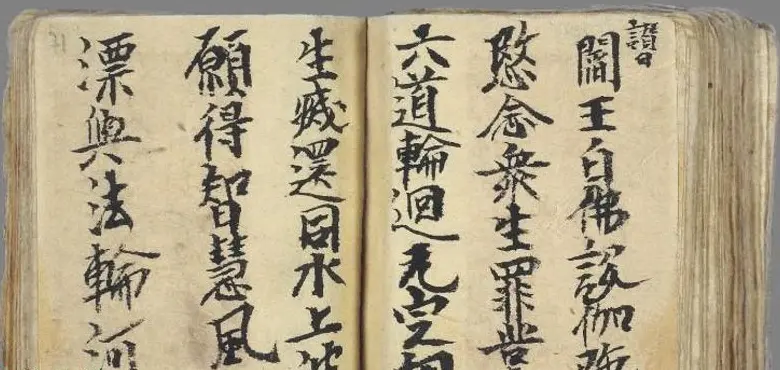 讚曰
閻王白佛説伽
愍念衆生罪苦
六道輪迴无定相
生滅還同水上波
願得智慧風
漂與法輪河